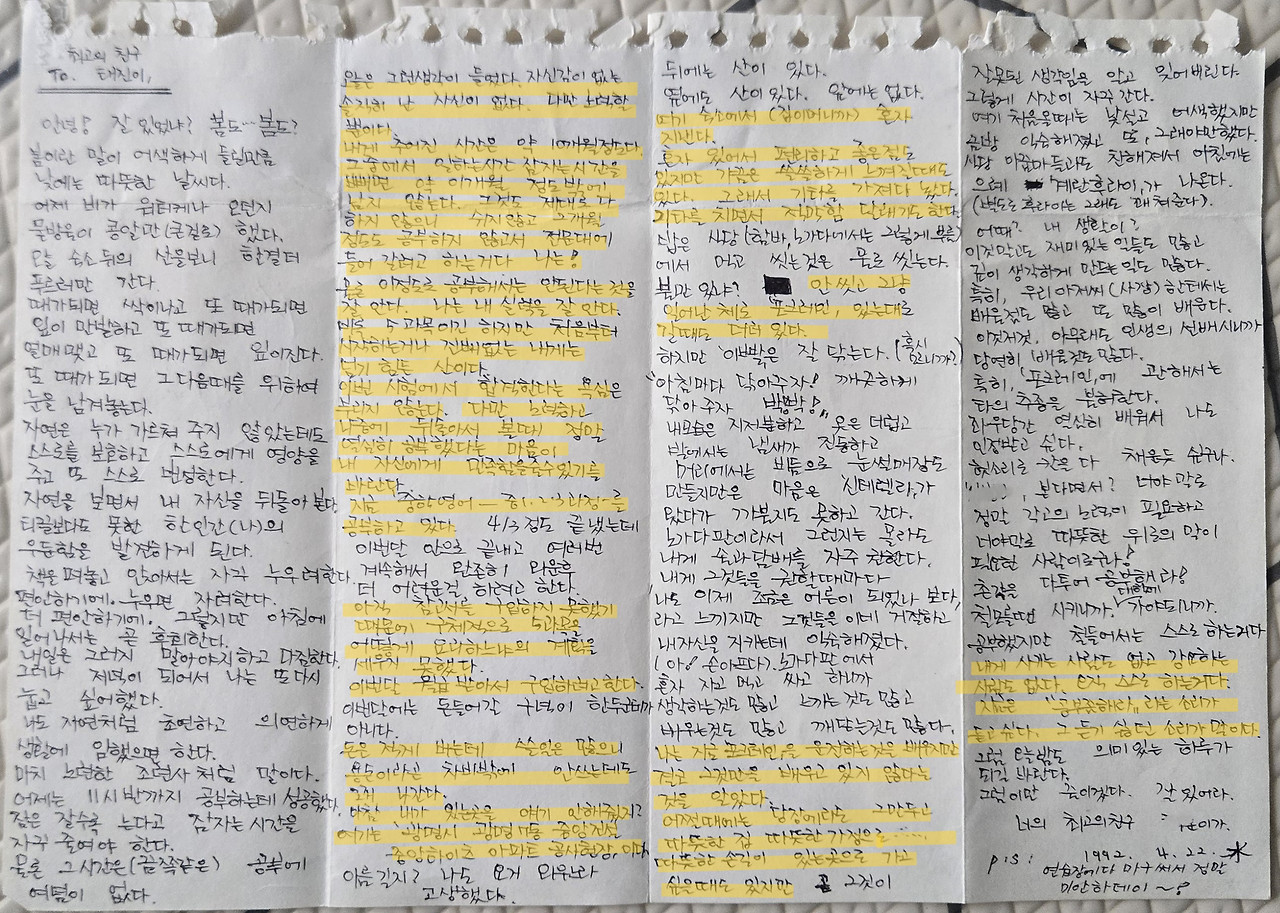 최고의 친구
To. 태진이,
안녕! 잘 있었나? 봄도…봄도?
봄이란 말이 어색하게 들릴만큼
낮에는 따뜻한 날씨다.
어제 비가 워터케나 오던지
물방울이 콩알만(큰걸로) 했다.
오늘 숙소뒤의 산을보니 한결더
푸르러만 간다.
때가되면 싹이나고 또 때가되면
잎이 만발하고 또 때가되면
열매맺고 또 때가되면 잎이진다.
또 때가되면 그다음때를 위하여
눈을 남겨놓는다.
자연은 누가 가르쳐 주지 않았는데도
스스로를 보호하고 스스로에게 영양을
주고 또 스스로 번성한다.
자연을 보면서 내 자신을 뒤돌아 본다.
티끌보다도 못한 한인간(나)의
우둔함을 발견하게 된다.
책을 펴놓고 앉아서는 자꾸 누우려한다.
편안하기에. 누우면 자려한다.
더 편안하기에. 그렇지만 아침에
일어나서는 곧 후회한다.
내일은 그러지 말아야지하고 다짐한다.
그러나 저녁이 되어서 나는 또다시
눕고 싶어했다.
나도 자연처럼 초연하고 의연하게
생활에 임했으면 한다.
마치 노련한 조련사처럼 말이다.
어제는 11시반까지 공부하는데 성공했다.
잠은 잘수록 는다고 잠자는 시간을
자꾸 줄여야 한다.
물론 그시간은(꿈쪽같은) 공부에
여념이 없다.
오늘은 그런생각이 들었다. 자신감이 없는
솔직히 난 자신이 없다. 다만 노력할
뿐이다.
내게 주어진 시간은 약 10개월정도다.
그중에서 일하는시간 잠자는시간을
빼면 약 3개월 정도밖에
남지 않는다. 그것도 제대로 다
하지 않으니 쉬지않고 3개월
정도도 공부하지 않고서 전문대에
들어 갈려고 하는거다 나는!
물론 이정도로 공부해서는 안된다는 것을
잘 안다. 나는 내 실력을 잘 안다.
비록 5과목이긴 하지만 처음부터
시작하는거나 진배없는 내게는
넘기 힘든 산이다.
이번 시험에서 합격한다는 욕심은
부리지 않는다. 다만 노력하고
나중에 뒤돌아서 볼때 정말
열심히 공부했다는 마음이
내 자신에게 만족함을줄수있기를
바란다.
지금 중학영어 — 중1.2.3과정을
공부하고 있다. 4/3정도 끝냈는데
이번달 안으로 끝내고 여러번
계속해서 완전히 외운후
더 어려운걸 하려고 한다.
아직 참고서는 구입하지 못했기
때문에 구체적으로 5과목을
어떻게 요리하느냐의 계획을
세우진 못했다.
이번달 월급 받아서 구입하려고 한다.
이번달에는 돈들어갈 구녁이 한두군데가
아니다.
돈은 적게 버는데 쓸일은 많으니
용도이라곤 차비밖에 안쓰는데도
그리 나간다.
아참! 내가 있는곳은 얘기 안해줬지?
여기는 '광명시 광명7동 중앙건설
중앙하이츠 아파트 공사현장,이다.
이름길지? 나도 오거 외우느라
고생했다.
뒤에는 산이 있다.
옆에도 산이있다. 앞에는 없다.
여기 숙소에서 (집이머니까) 혼자
지낸다.
혼자 있어서 편리하고 좋은점도
있지만 가끔은 쓸쓸하게 느껴질때도
있다. 그래서 기타를 가져다 놨다.
기타를 치면서 전마협 노래가도 한다.
밥은 식당 (함바, 노가다에서는 그렇게 부름)
에서 먹고 씻는것은 물로 씻는다.
불만 있냐? 안씻고 그냥
일어난 체로 포크레인, 있는데로
갈때도 더러 있다.
하지만 이빨은 잘 닦는다. (혹시 모르니까?)
"아침마다 닦아주자! 깨끗하게
닦아주자 빡빡!"
내모습은 지저분하고 옷은 더럽고
발에서는 냄새가 진동하고
머리에서는 비듬으로 눈썰매장도
만들지만은 마음은 신데렐라,가
왔다가 기가죽지도 못하고 간다.
노가다판이라서 그런지는 몰라도
내게 술과담배를 자주 권한다.
내게 그것들을 권할때마다
나도 이제 조금은 어른이 되었나 보다,
라고 느끼지만 그것들을 이내 거절하고
내자신을 지키는데 익숙해졌다.
(아! 손아프다.) 노가다판에서
혼자 자고 먹고 싸고 하니까
생각하는것도 많고 느끼는 것도 많고
배우는것도 많고 깨닫는것도 많다.
나는 지금 포크레인,을 운전하는것을 배우지만
결코 그것만을 배우고 있지 않다는
것을 알았다.
어떤때에는 당장에라도 그만두고
따뜻한 집 따뜻한 가정으로……
따뜻한 손길이 있는곳으로 가고
싶을때도 있지만 곧 그것이
잘못된 생각임을 알고 잊어버린다.
그렇게 시간이 자꾸 간다.
여기 처음왔을때는 낯설고 어색했지만
금방 익숙해졌고 또, 그래야만했다.
식당 아줌마들과도 친해져서 아침에는
으레 계란후라이,가 나온다.
(별도로 후라이는 그래도 꽤 쳐준다).
어때? 내 생활이?
이것말고도 재미있는 일들도 많고
깊이 생각하게 만드는 일도 많다.
특히, 우리아저씨(사장) 한테서는
배울점도 많고 또 많이 배운다.
이것저것. 아무래도 인생의 선배시니까
당연히 배울점도 많다.
특히, '포크레인,에 관해서는
타의 추종을 불허한다.
좌우당간 열심히 배워서 나도
인정받고 싶다.
헛소리로 칸은 다 채운듯 싶구나.
"……, 본다면서? 너야 말로
정말 각고의 노력이 필요하고
너야말로 따뜻한 위로의 말이
필요한 사람이로구나!
촌각을 다투어 공부해라!
칠판볼땐 시키니까 대학에 가야되니까.
공부했지만 철들어서는 스스로 하는거다
내게 시키는 사람도 없고 강요하는
사람도 없다. 오직 스스로 하는거다.
지금은 "공부좀하라"라는 소리가
듣고싶다. 그 듣기 싫던 소리가 말이다.
그럼 오늘밤도 의미있는 하루가
되길 바란다.
그럼이만 줄이겠다. 잘 있어라.
너의 최고의친구 이가.
1992. 4. 22. 水
P.S: 연습장에다 마구써서 정말
미안하데이~!